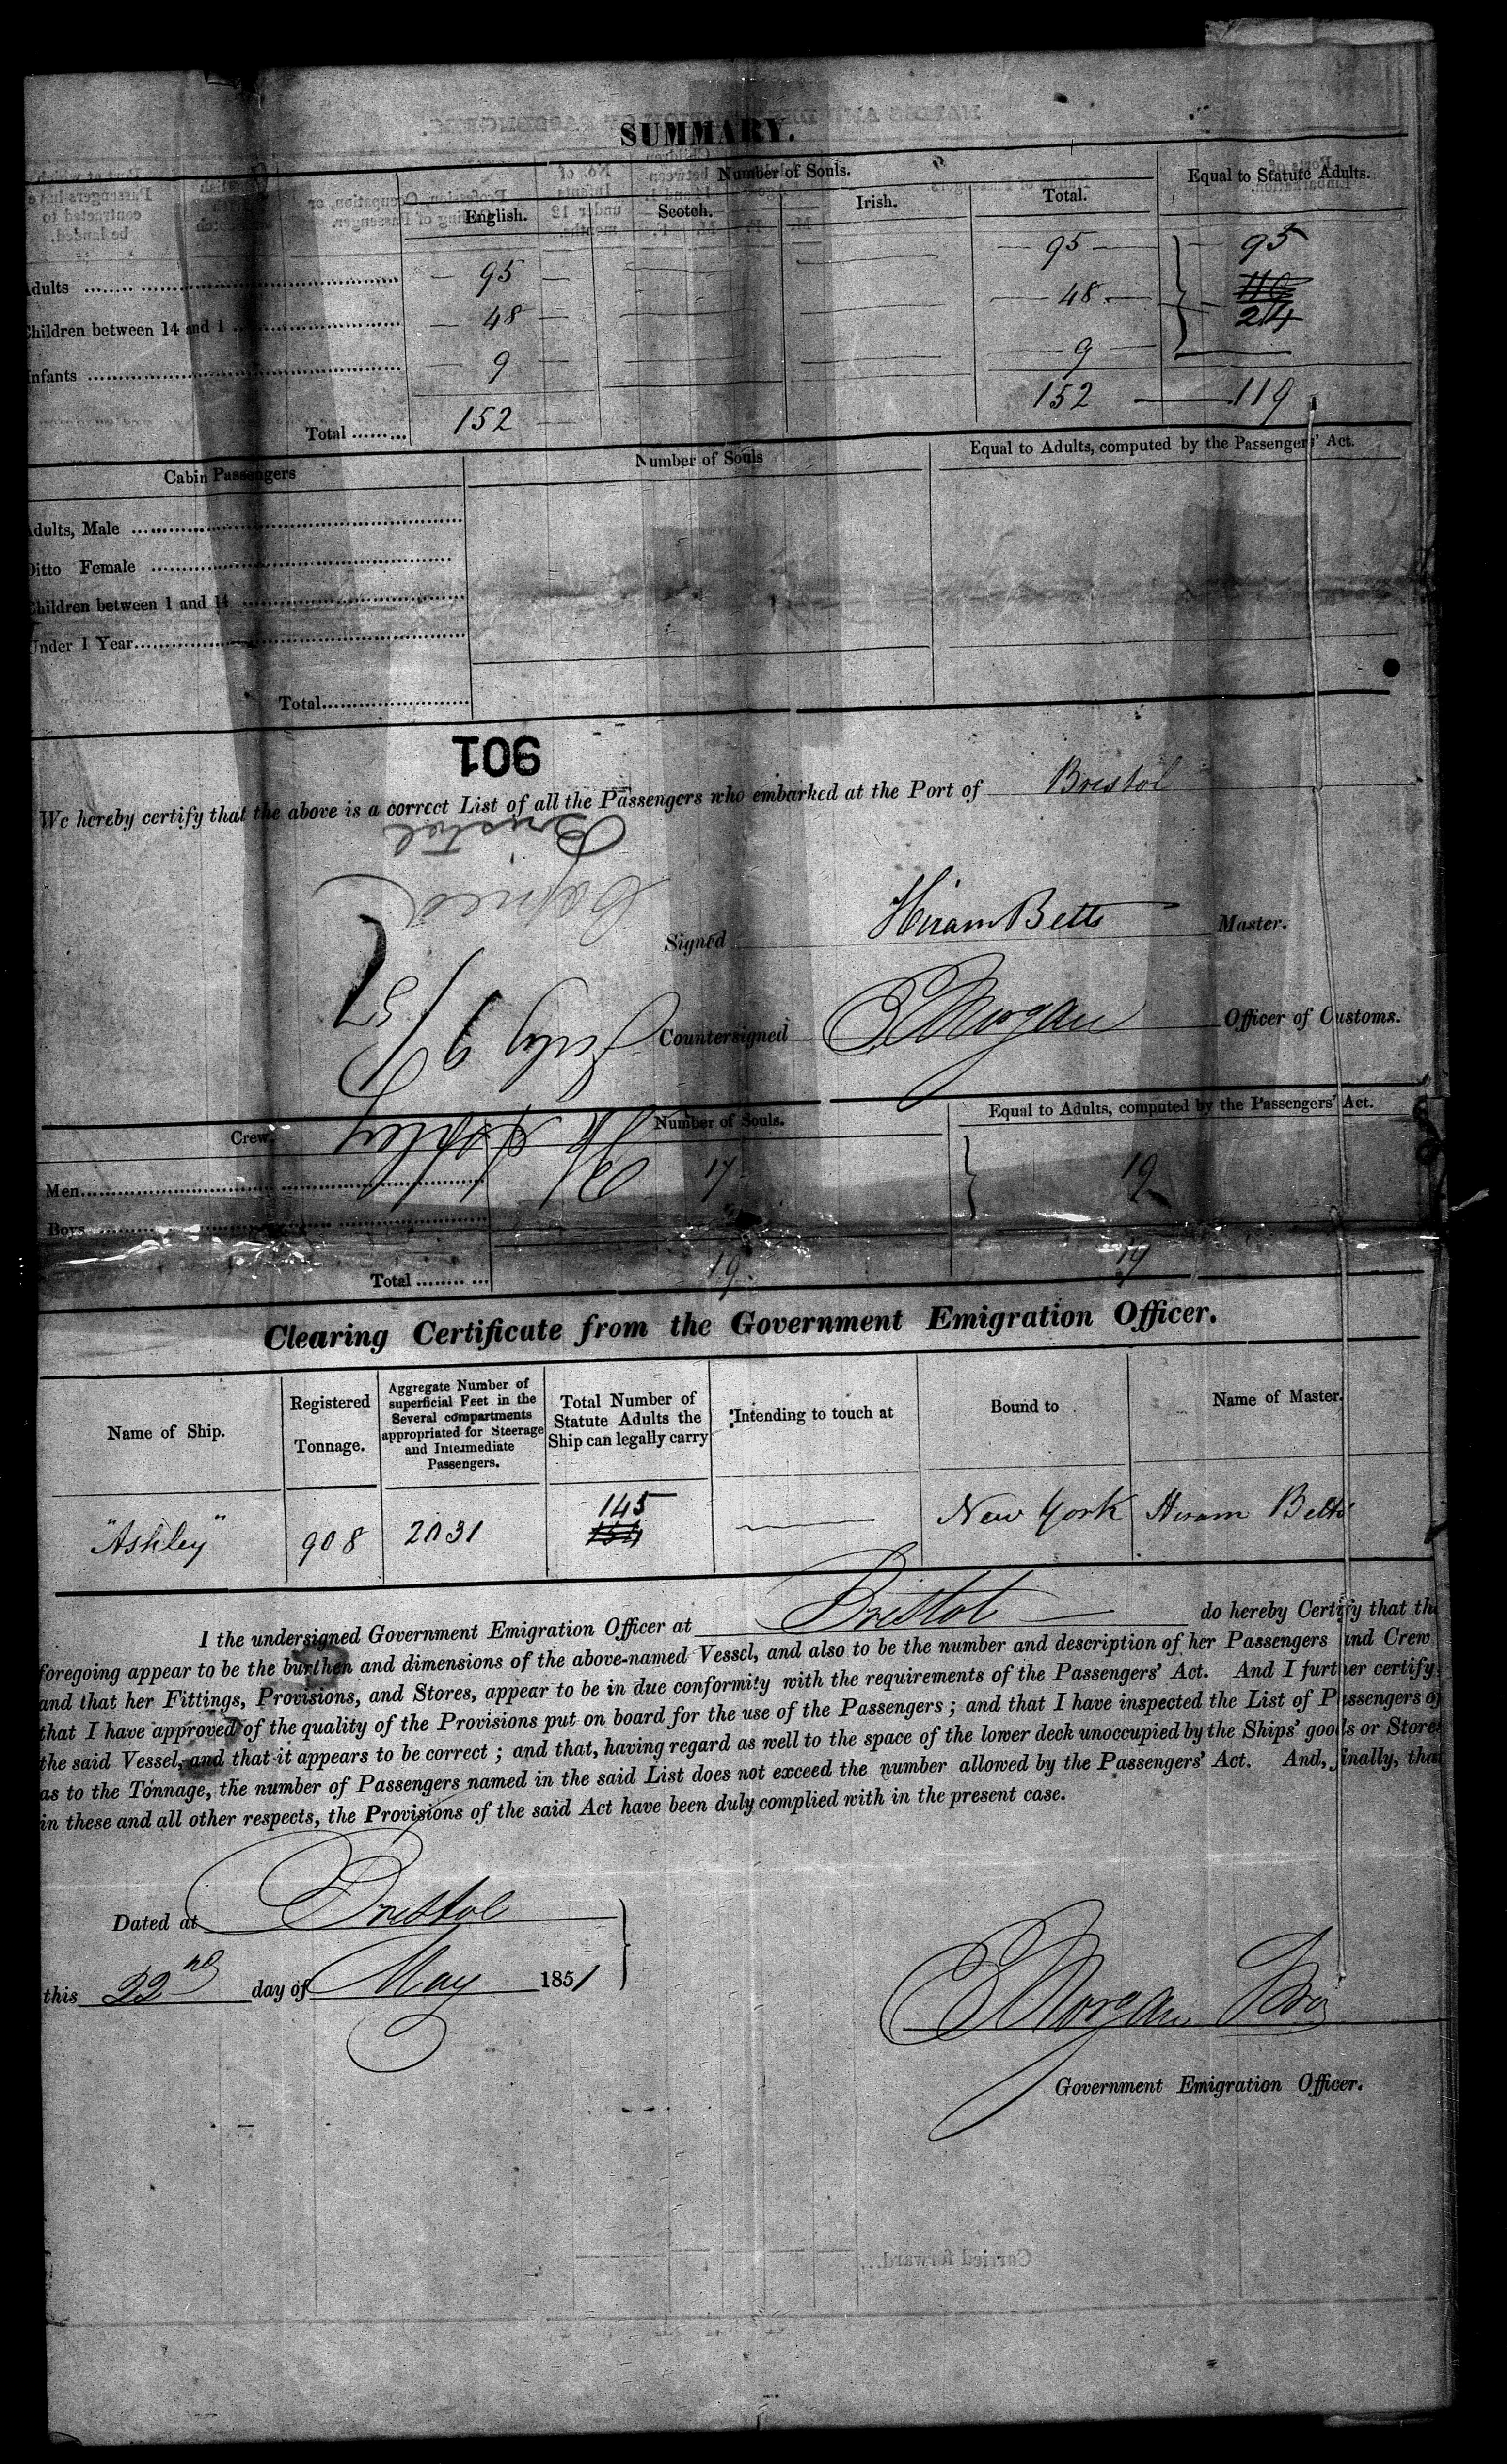 SUMMARY.
Number of Souls. Equal to Statute Adults.
English. Scotch. Irish. Total.
Adults 95 95 95
Children between 14 and 1 48 48 24
Infants 9 9
Total 152 152 119
Cabin Passengers Number of Souls Equal to Adults, computed by the Passengers' Act.
Adults, Male
Ditto Female
Children between 1 and 14
Under 1 Year
Total
901
We hereby certify that the above is a correct List of all the Passengers who embarked at the Port of Bristol
Bristol
Copied
Signed Hiram Betts Master.
July 9/51
Countersigned Morgan Officer of Customs.
Ashley
Crew. Number of Souls. Equal to Adults, computed by the Passengers' Act.
Men 19
Boys
Total 19 19
Clearing Certificate from the Government Emigration Officer.
Name of Ship. Registered Tonnage. Aggregate Number of superficial Feet in the Several compartments appropriated for Steerage and Intermediate Passengers. Total Number of Statute Adults the Ship can legally carry Intending to touch at Bound to Name of Master.
"Ashley" 908 2031 145 154 New York Hiram Betts
I the undersigned Government Emigration Officer at Bristol do hereby Certify that the
foregoing appear to be the burthen and dimensions of the above-named Vessel, and also to be the number and description of her Passengers and Crew
and that her Fittings, Provisions, and Stores, appear to be in due conformity with the requirements of the Passengers' Act. And I further certify
that I have approved of the quality of the Provisions put on board for the use of the Passengers; and that I have inspected the List of Passengers of
the said Vessel, and that it appears to be correct; and that, having regard as well to the space of the lower deck unoccupied by the Ships' goods or Stores
as to the Tonnage, the number of Passengers named in the said List does not exceed the number allowed by the Passengers' Act. And, finally, that
in these and all other respects, the Provisions of the said Act have been duly complied with in the present case.
Dated at Bristol
this 22nd day of May 1851
Morgan
Government Emigration Officer.
Carried forward...